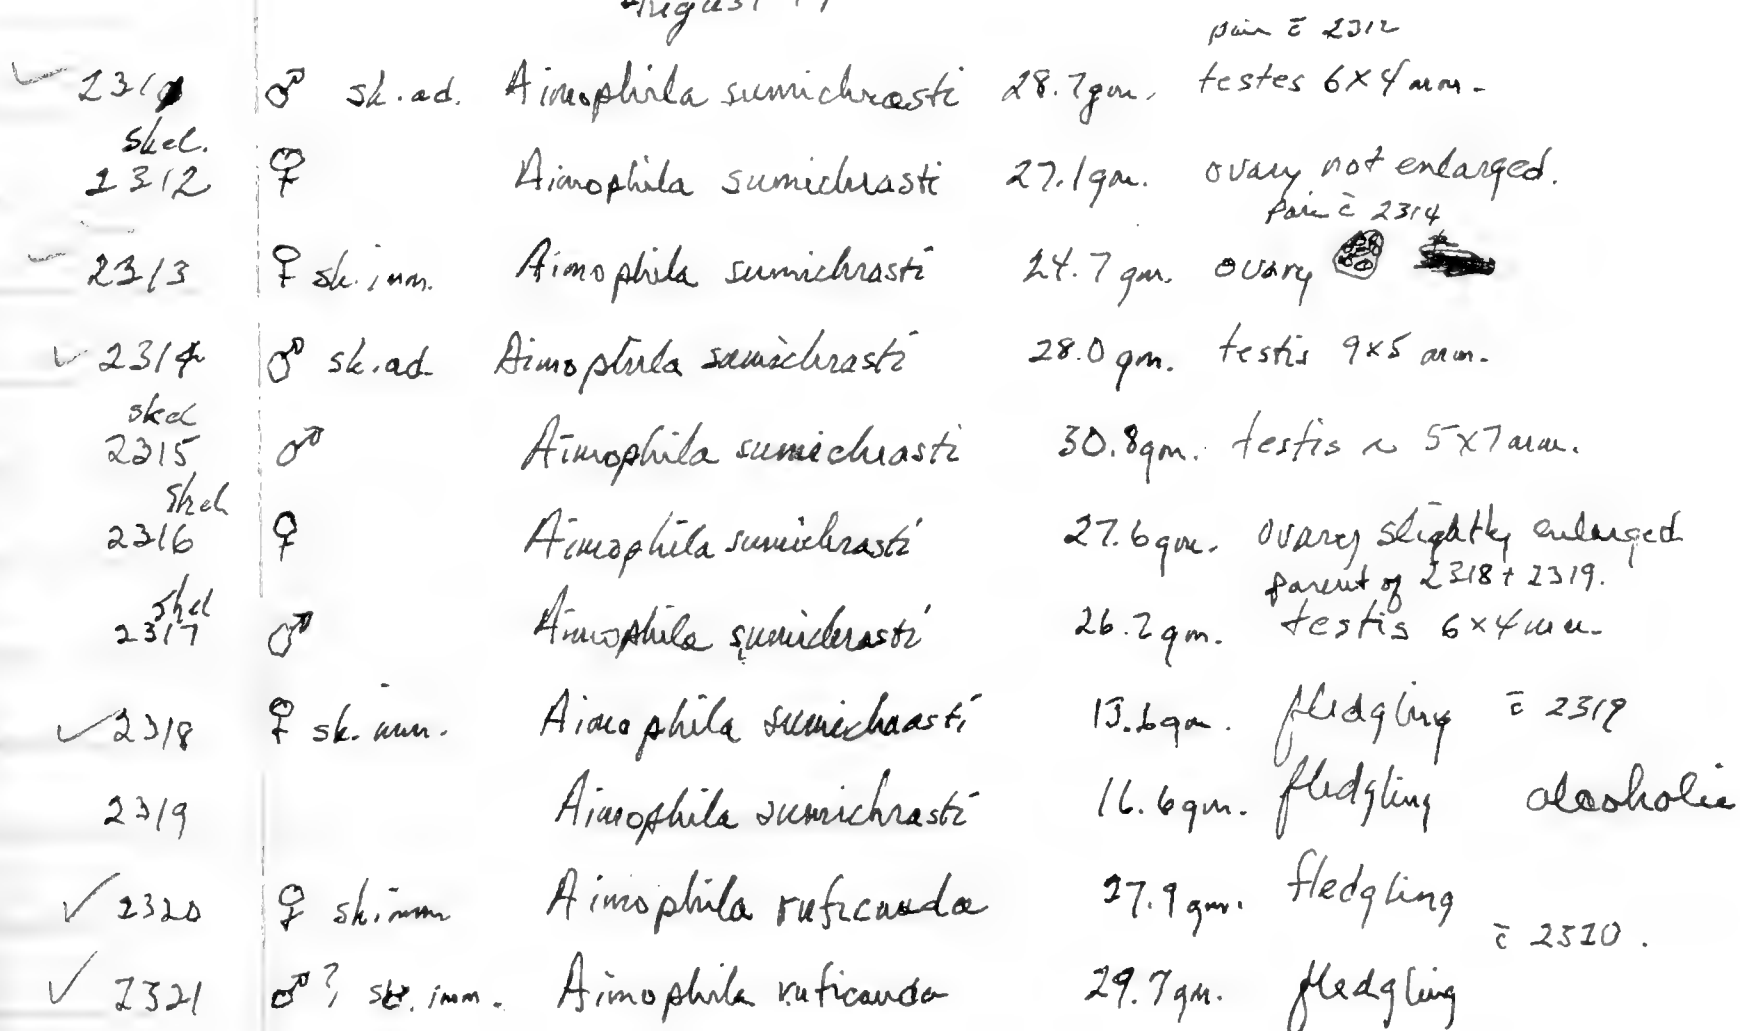 August
pair c̄ 2312
✓ 2311 ♂ sk. ad. Aimophila sumichrasti 28.7 gm. testes 6x4 mm.
skel.
2312 ♀ Aimophila sumichrasti 27.1 gm. ovary not enlarged.
pair c̄ 2314
✓ 2313 ♀ sk. imm. Aimophila sumichrasti 24.7 gm. ovary
✓ 2314 ♂ sk. ad. Aimophila sumichrasti 28.0 gm. testis 9x5 mm.
skel
2315 ♂ Aimophila sumichrasti 30.8 gm. testis ~ 5x7 mm.
skel
2316 ♀ Aimophila sumichrasti 27.6 gm. ovary slightly enlarged
parent of 2318 + 2319.
skel
2317 ♂ Aimophila sumichrasti 26.2 gm. testis 6x4 mm.
✓ 2318 ♀ sk. imm. Aimophila sumichrasti 13.6 gm. fledgling c̄ 2319
2319 Aimophila sumichrasti 16.6 gm. fledgling alcoholic
✓ 2320 ♀ sk. imm Aimophila ruficauda 27.9 gm. fledgling
c̄ 2320.
✓ 2321 ♂?, sk. imm. Aimophila ruficauda 29.7 gm. fledgling